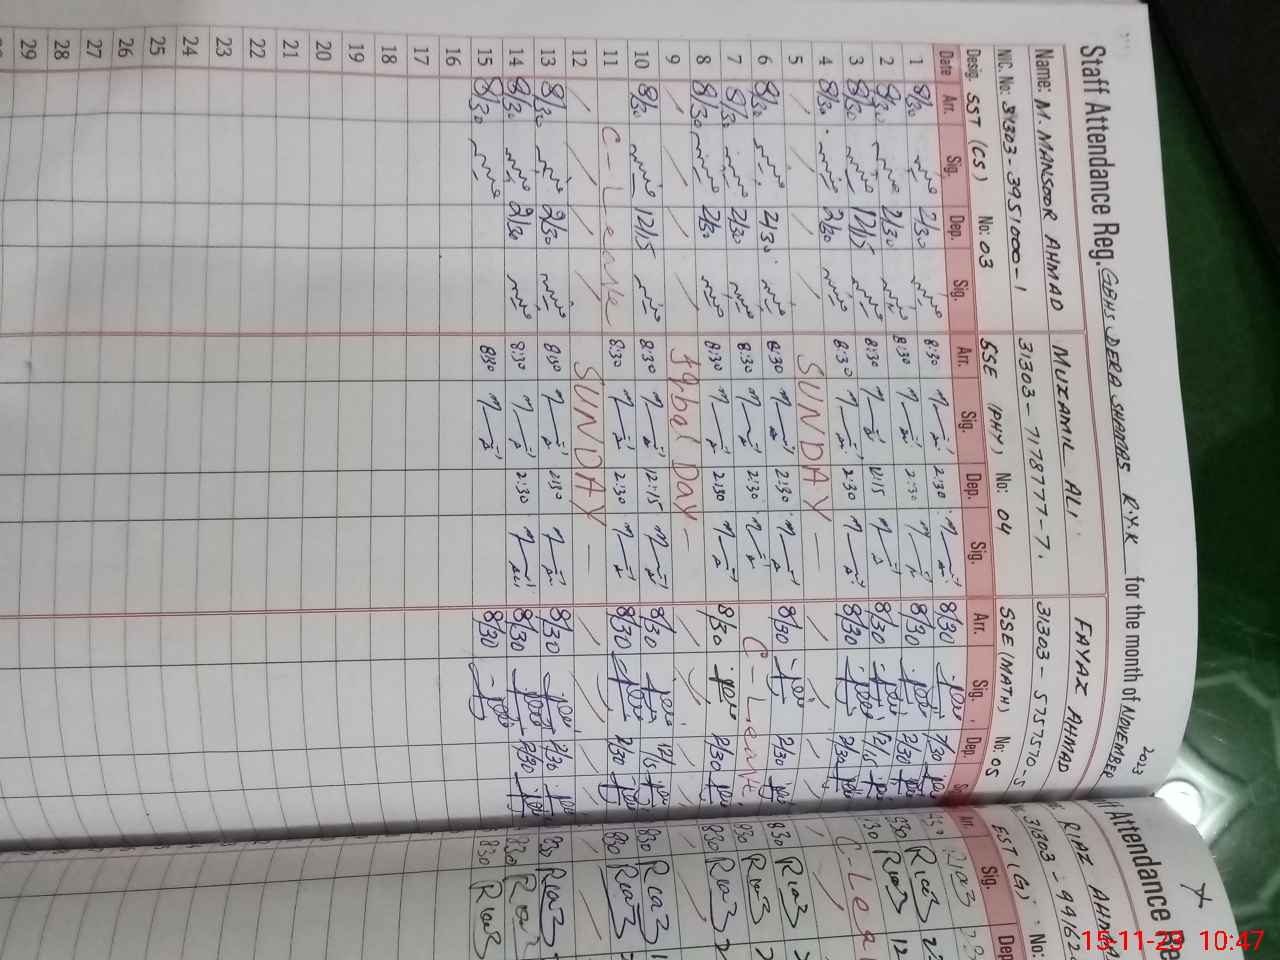 Staff Attendance Reg. GBHS DERA SHAMAS R.Y.K for the month of NOVEMBER 2023
Name: M. MANSOOR AHMAD MUZAMIL ALI FAYAZ AHMAD
NIC. No: 31303-3951000-1 31303-7178777-7. 31303-5757570-5
Desig. SST (CS) No: 03 SSE (PHY) No: 04 SSE (MATH) No: 05
Date Arr. Sig. Dep. Sig. Arr. Sig. Dep. Sig. Arr. Sig. Dep.
1 8/30 2/30 8:30 2:30 8/30 2/30
2 8/30 2/30 8:30 2:30 8/30 2/30
3 8/30 12/15 8:30 12:15 8/30 12/15
4 8/30 2/30 8:30 2:30 8/30 2/30
5 SUNDAY
6 8/30 2/30 8:30 2:30 8/30 2/30
7 8/30 2/30 8:30 2:30 C-Leave
8 8/30 2/30 8:30 2:30 8/30 2/30
9 Iqbal Day
10 8/30 12/15 8:30 12:15 8/30 12/15
11 C-Leave 8:30 2:30 8/30 2/30
12 SUNDAY
13 8/30 2/30 8:30 2:30 8/30 2/30
14 8/30 2/30 8:30 2:30 8/30 2/30
15 8/30 8:30 8/30
16
17
18
19
20
21
22
23
24
25
26
27
28
29
Attendance Re
RIAZ AHMA
31303-99162
EST (G) No:
Arr. Sig. Dep
Riaz
930 Riaz
130 Riaz 12
C-Lea
830 Riaz
930 Riaz
830 Riaz
830 Riaz
830 Riaz
830 Riaz
830 Riaz
830 Riaz
15-11-23 10:47